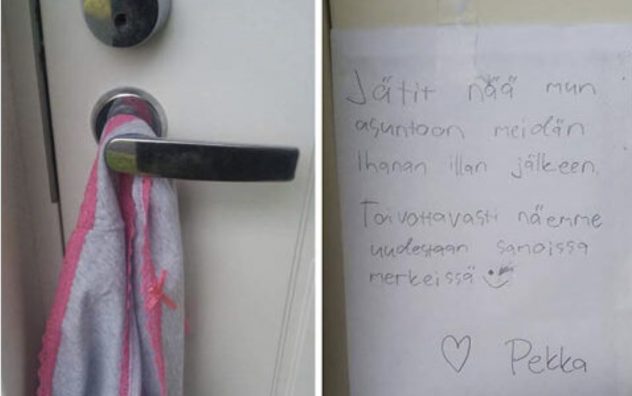 Jätit nää mun
asuntoon meidän
Ihanan illan jälkeen.
Toivottavasti näemme
uudestaan samoissa
merkeissä
Pekka